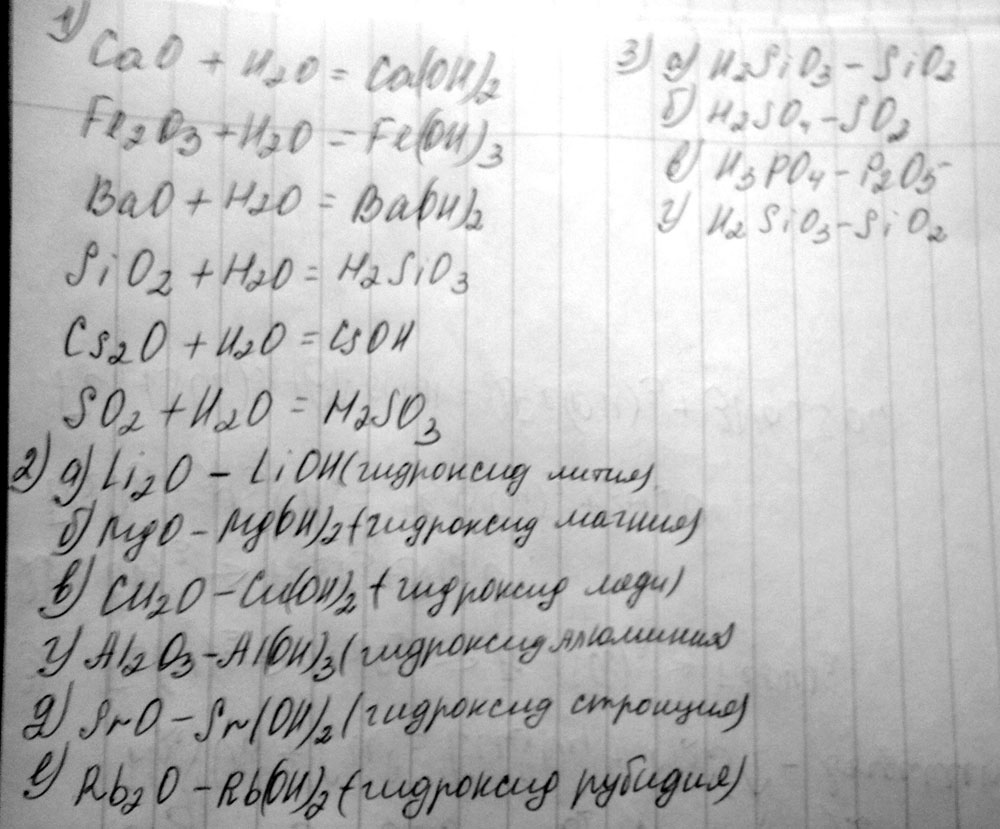 1)
CaO + H2O = Ca(OH)2
Fe2O3 + H2O = Fe(OH)3
BaO + H2O = Ba(OH)2
SiO2 + H2O = H2SiO3
Cs2O + H2O = CsOH
SO2 + H2O = H2SO3
2) а) Li2O - LiOH (гидроксид лития)
б) MgO - Mg(OH)2 (гидроксид магния)
в) Cu2O - Cu(OH)2 (гидроксид меди)
г) Al2O3 - Al(OH)3 (гидроксид алюминия
д) SrO - Sr(OH)2 (гидроксид стронция)
е) Rb2O - Rb(OH)2 (гидроксид рубидия)
3) а) H2SiO3 - SiO2
б) H2SO4 - SO2
в) H3PO4 - P2O5
г) H2SiO3 - SiO2